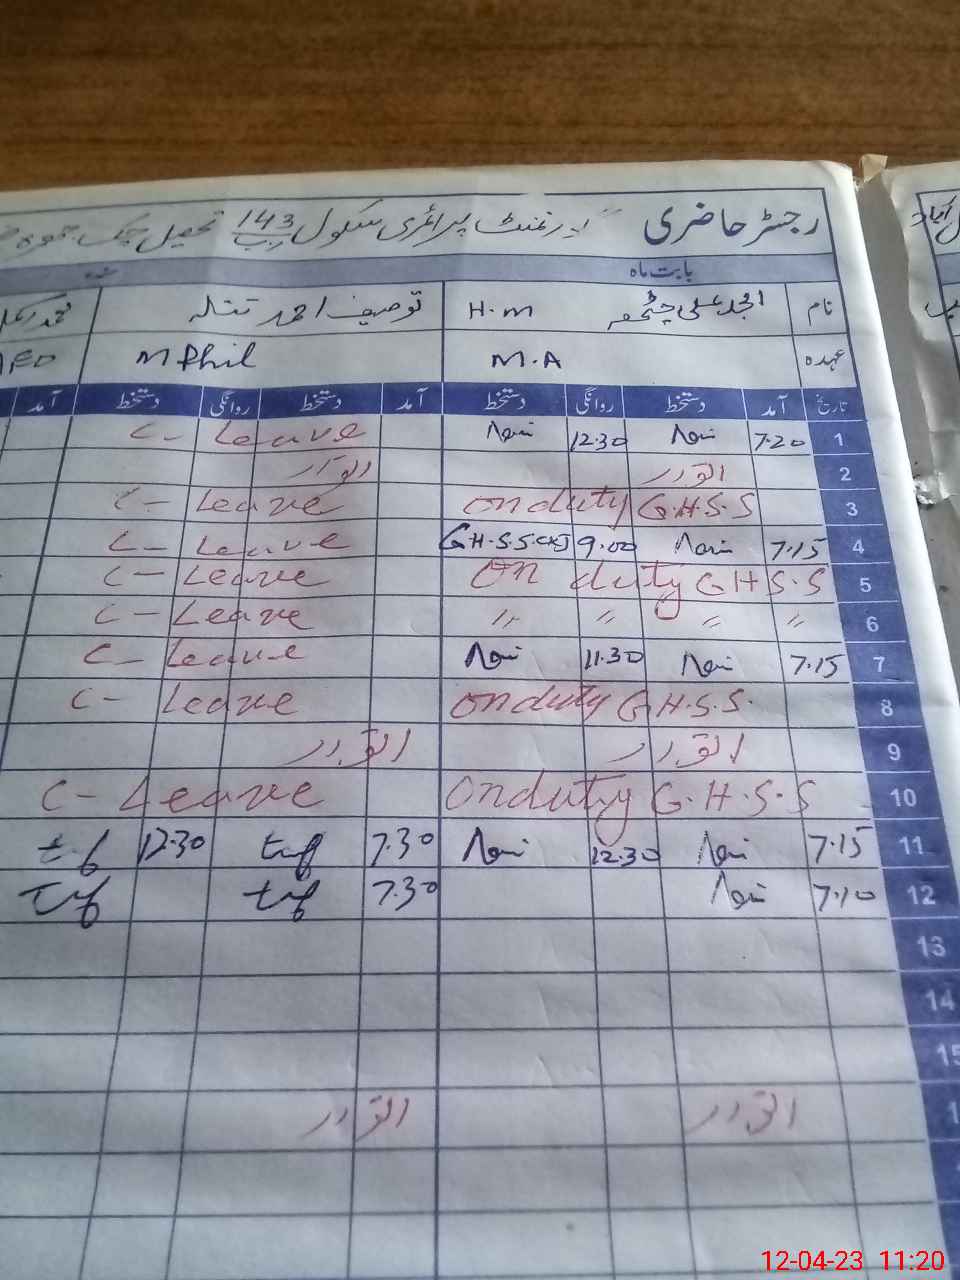 رجسٹر حاضری گورنمنٹ پرائمری سکول 143 ر ب تحصیل چک جھمرہ
بابت ماہ
نام امجد علی چٹھہ H.M توصیف احمد محمد
عہدہ M.A M Phil
تاریخ آمد دستخط روانگی دستخط آمد دستخط روانگی دستخط آمد
1 7.20 12.30 C- Leave
2 اتوار اتوار
3 onduty G.H.S.S C- Leave
4 7.15 9.00 G.H.S.S.CKJ C- Leave
5 on duty G H S.S C- Leave
6 〃 〃 〃 〃 C- Leave
7 7.15 11.30 C- Leave
8 onduty G.H.S.S. C- Leave
9 اتوار اتوار
10 onduty G.H.S.S C- Leave
11 7.15 12.30 7.30 12.30
12 7.10 7.30
13
14
15
اتوار اتوار
12-04-23 11:20